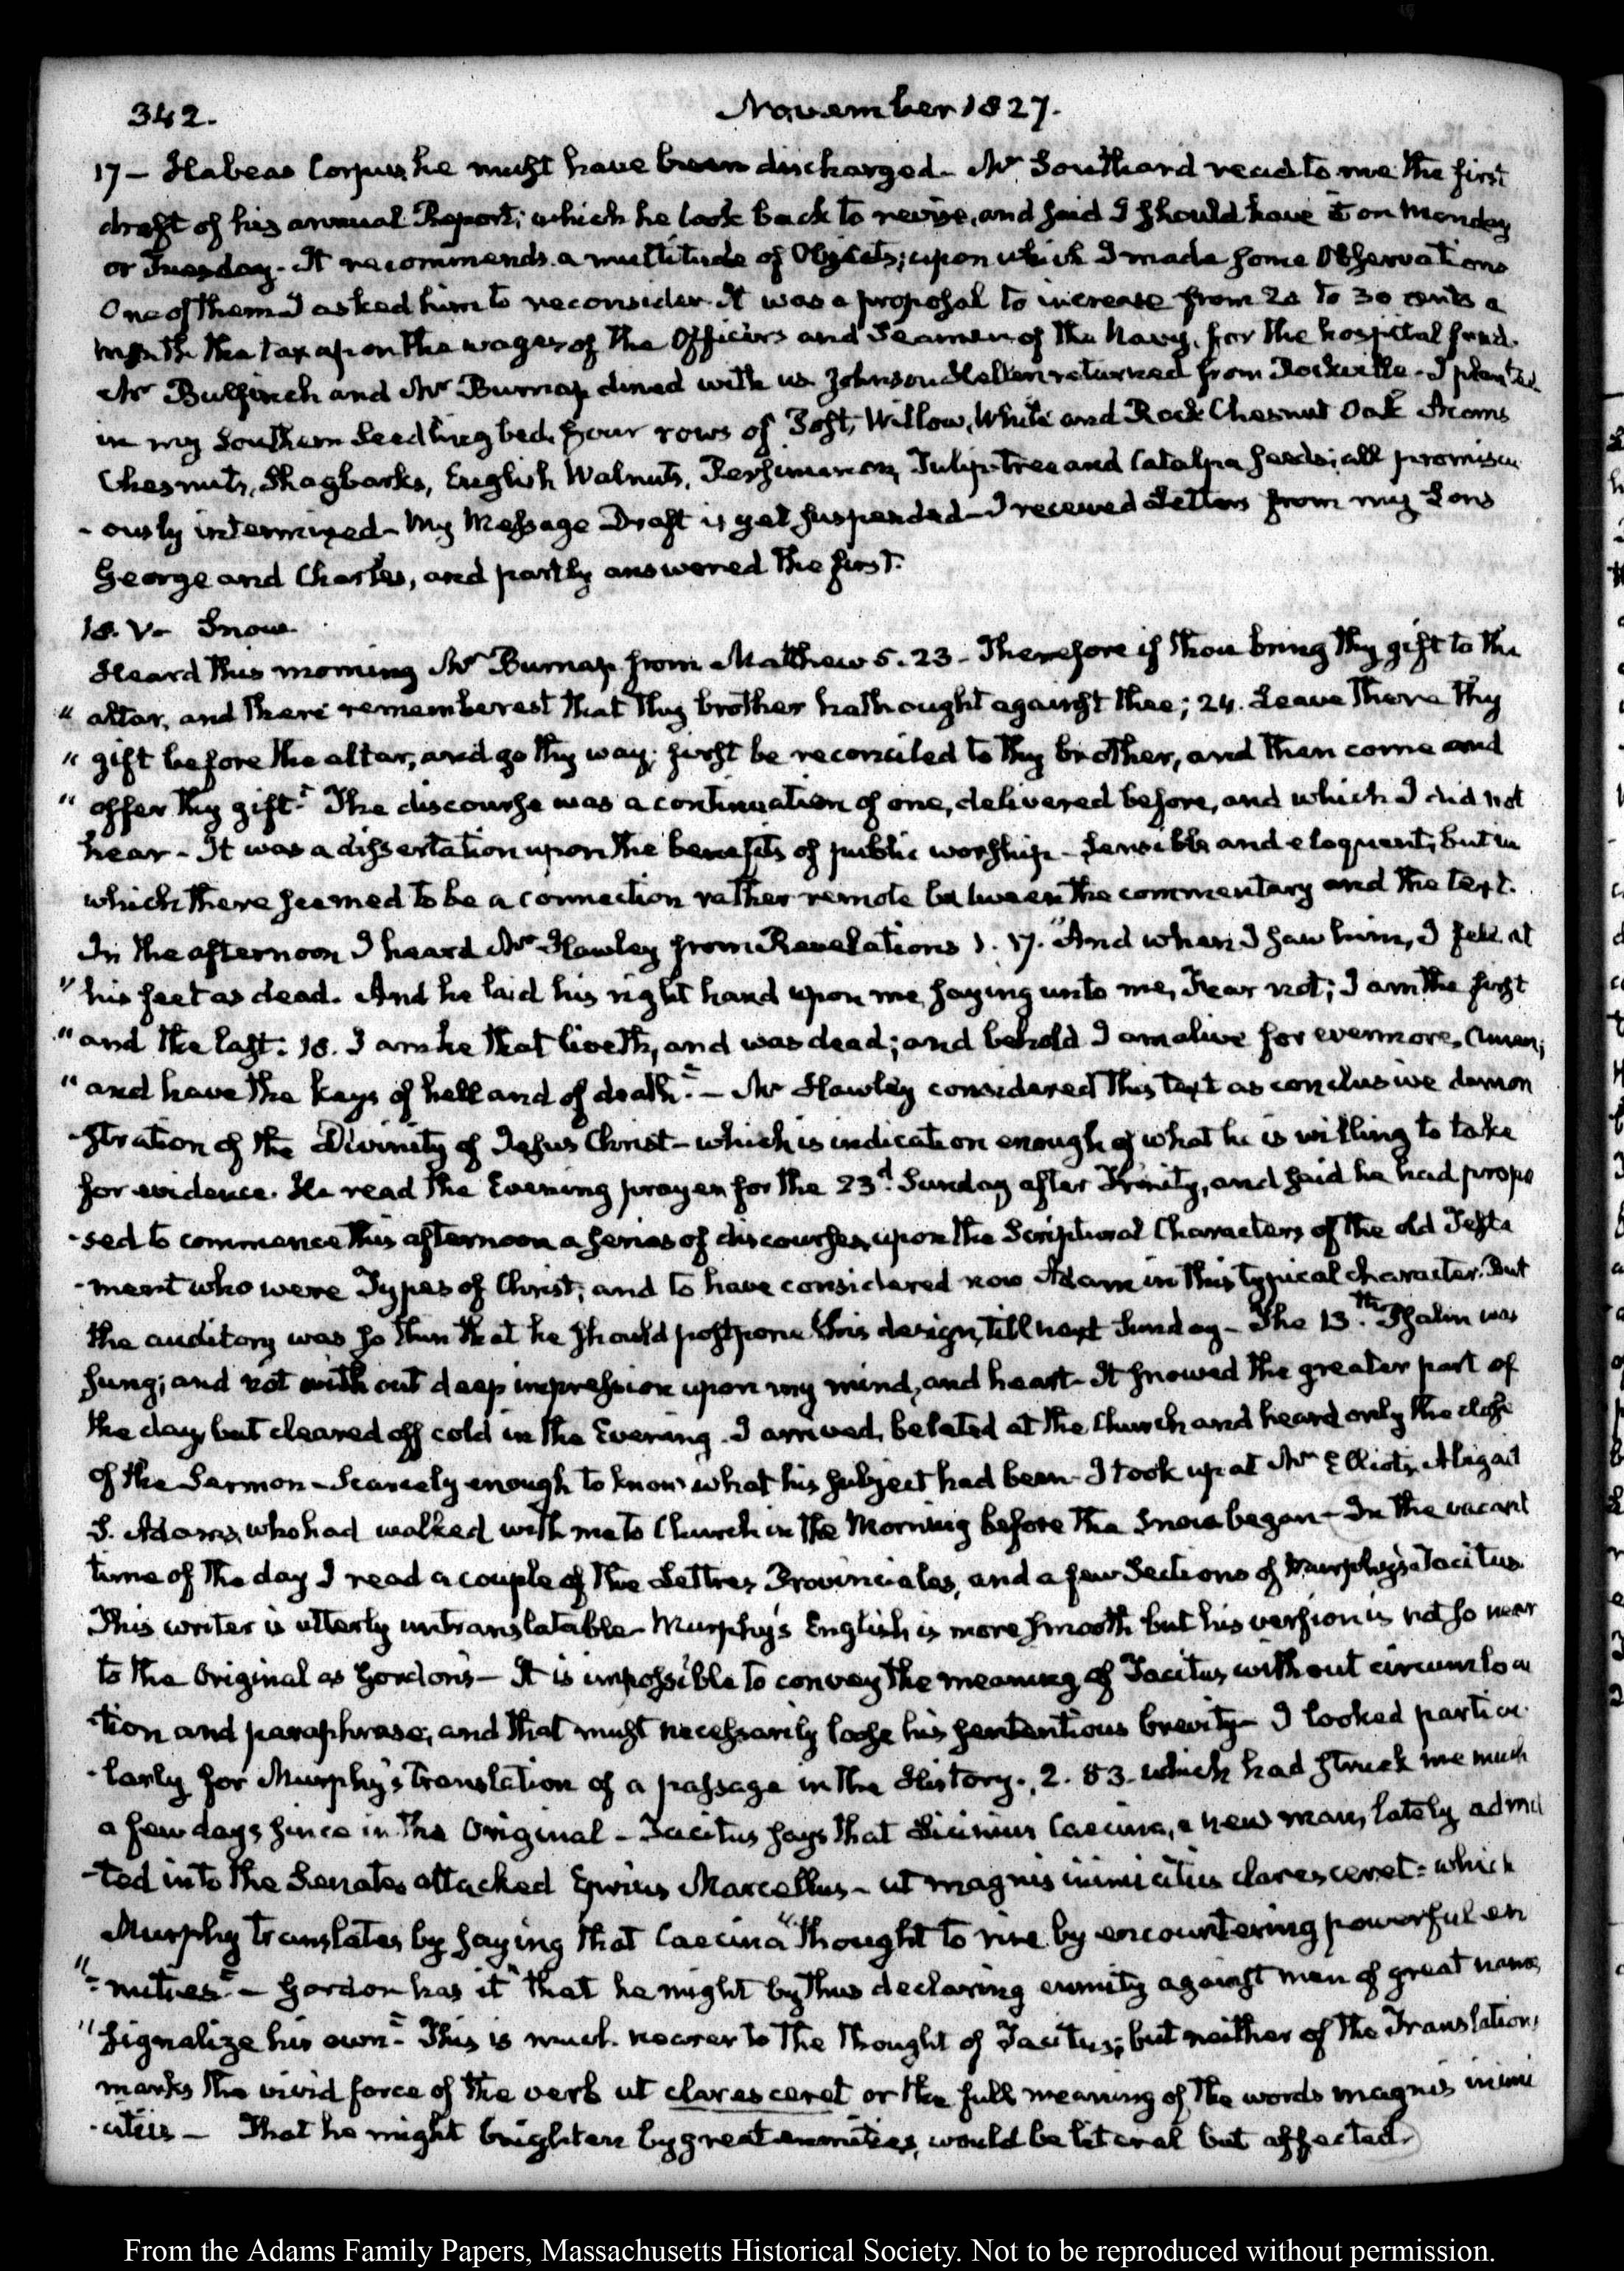 342.
November 1827.
17 – Habeas Corpus, he must have been discharged – Mr Southard read to me the first
draft of his annual Report; which he took back to revise, and said I should have it on Monday
or Tuesday – It recommends a multitude of Objects; upon which I made some Observations
One of them I asked him to reconsider. It was a proposal to increase from 20 to 30 cents a
month the tax upon the wages of the Officers and Seamen of the Navy, for the hospital fund.
Mr Bulfinch and Mr Burnap dined with us Johnson Hellen returned from Rockville – I planted
in my Southern Seedling bed, four rows of Post, Willow, White and Rock Chesnut Oak Acorns
Chesnuts, Shagbarks, English Walnuts, Persimmon, Tulip-tree and Catalpa seeds; all promiscu
- ously intermixed – My Message Draft is yet suspended – I received Letters from my Sons
George and Charles, and partly answered the first.
18. V – Snow.
Heard this morning Mr Burnap from Matthew 5. 23 – Therefore if thou bring thy gift to the
" altar, and there rememberest that thy brother hath ought against thee; 24. Leave there thy
" gift before the altar, and go thy way; first be reconciled to thy brother, and then come and
" offer thy gift." The discourse was a continuation of one, delivered before, and which I did not
hear – It was a dissertation upon the benefits of public worship – Sensible and eloquent; but in
which there seemed to be a connection rather remote between the commentary and the text.
In the afternoon I heard Mr Hawley from Revelations 1. 17. "And when I saw him, I fell at
" his feet as dead. And he laid his right hand upon me, saying unto me, Fear not; I am the first
" and the last: 18. I am he that liveth, and was dead; and behold I am alive for evermore, Amen;
" and have the keys of hell and of death." – Mr Hawley considered this text as conclusive demon
- stration of the Divinity of Jesus Christ – which is indication enough of what he is willing to take
for evidence. He read the Evening prayer for the 23d. Sunday after Trinity, and said he had propo
- sed to commence this afternoon a series of discourses, upon the Scriptural Characters of the old Testa
- ment who were Types of Christ; and to have considered now Adam in this typical character. But
the auditory was so thin that he should postpone this design, till next Sunday – The 13.th Psalm was
sung; and not without deep impression upon my mind, and heart – It snowed the greater part of
the day, but cleared off cold in the Evening. I arrived, belated at the Church and heard only the close
of the Sermon – Scarcely enough to know what his subject had been – I took up at Mr Elliot's Abigail
S. Adams, who had walked with me to Church in the Morning before the Snow began – In the vacant
time of the day I read a couple of the Lettres Provinciales, and a few Sections of Murphy's Tacitus.
This writer is utterly untranslatable – Murphy's English is more smooth but his version is not so near
to the Original as Gordon's – It is impossible to convey the meaning of Tacitus without circumlocu
- tion and paraphrase; and that must necessarily lose his sententious brevity – I looked particu
- larly for Murphy's translation of a passage in the History. 2. 53. which had struck me much
a few days since in the Original – Tacitus says that Licinius Caecina, a new man, lately admit
- ted into the Senate, attacked Eprius Marcellus – ut magnis inimicitiis claresceret: which
Murphy translates by saying that Caecina "thought to rise by encountering powerful en
"- mities" – Gordon has it "that he might by thus declaring enmity against men of great name,
" signalize his own" – This is much nearer to the thought of Tacitus; but neither of the Translations
marks the vivid force of the verb ut claresceret or the full meaning of the words magnis inimi
- citiis – That he might brighten by great enmities, would be literal but affected.
From the Adams Family Papers, Massachusetts Historical Society. Not to be reproduced without permission.